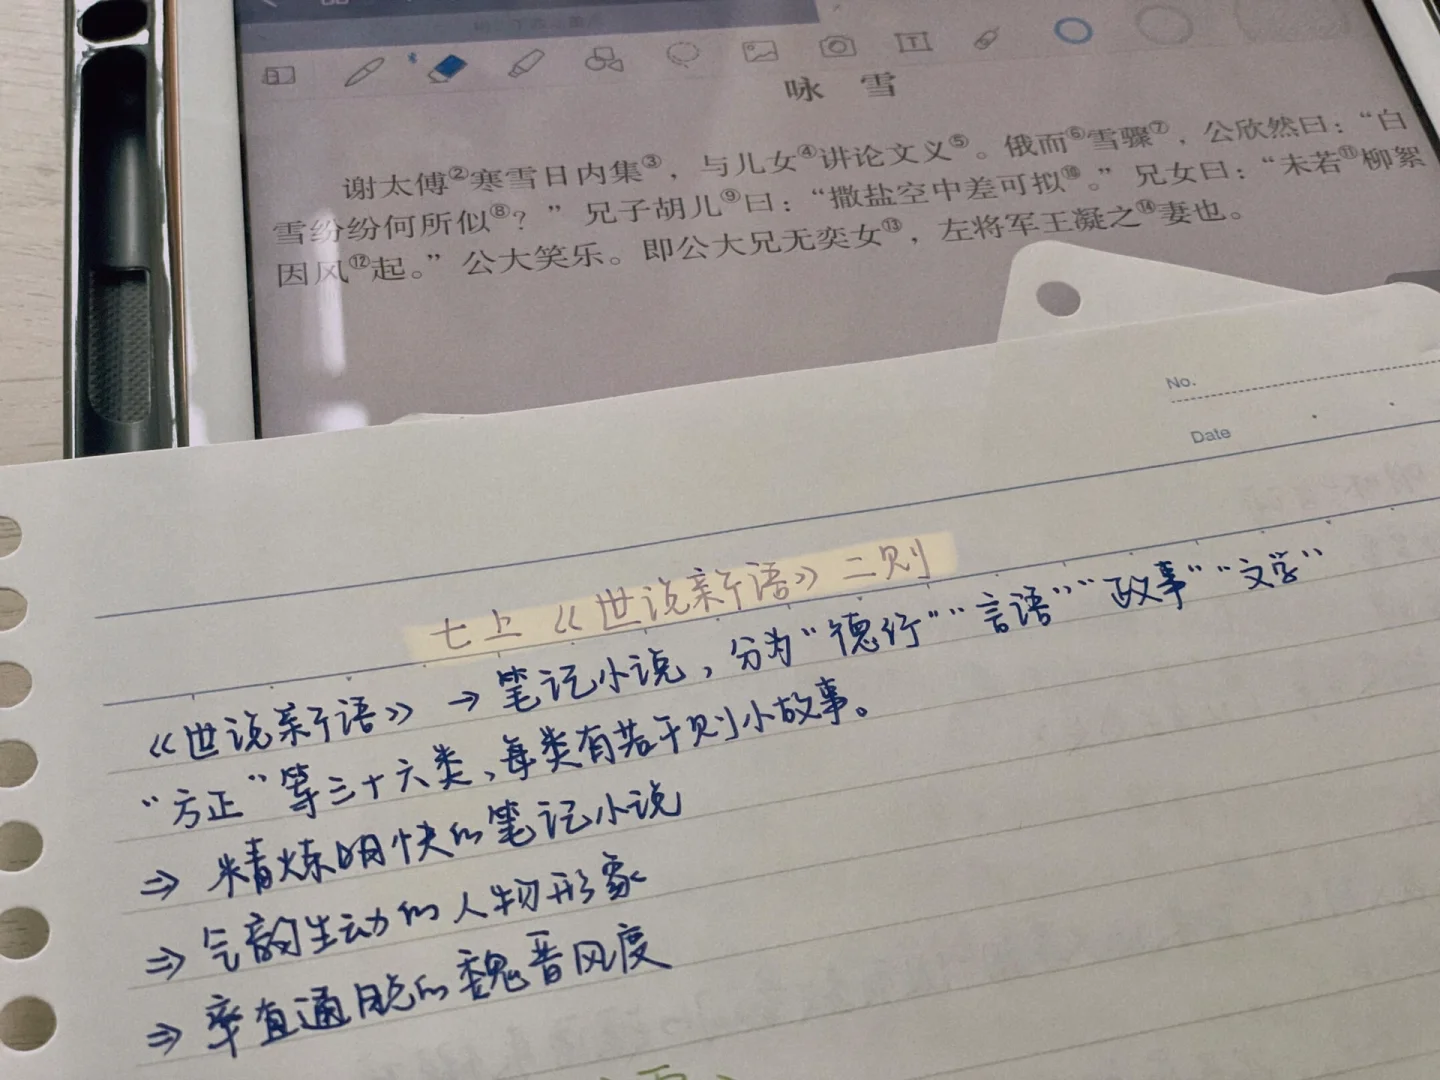 咏 雪
谢太傅②寒雪日内集③，与儿女④讲论文义⑤。俄而⑥雪骤⑦，公欣然曰：“白
雪纷纷何所似⑧？”兄子胡儿⑨曰：“撒盐空中差可拟⑩。”兄女曰：“未若⑪柳絮
因风⑫起。”公大笑乐。即公大兄无奕女⑬，左将军王凝之⑭妻也。
No.
Date
七上《世说新语》二则
《世说新语》→笔记小说，分为“德行”“言语”“政事”“文学”
“方正”等三十六类，每类有若干则小故事。
⇒ 精炼明快的笔记小说
⇒ 气韵生动的人物形象
⇒ 率直通脱的魏晋风度